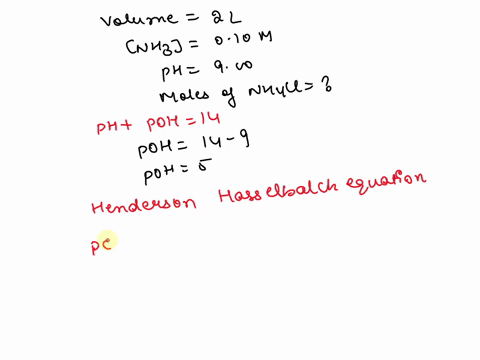 Volume = 2L
[NH3] = 0.10 M
pH = 9.00
Moles of NH4Cl = ?
PH + POH = 14
POH = 14-9
POH = 5
Henderson Hasselbalch equation
PC